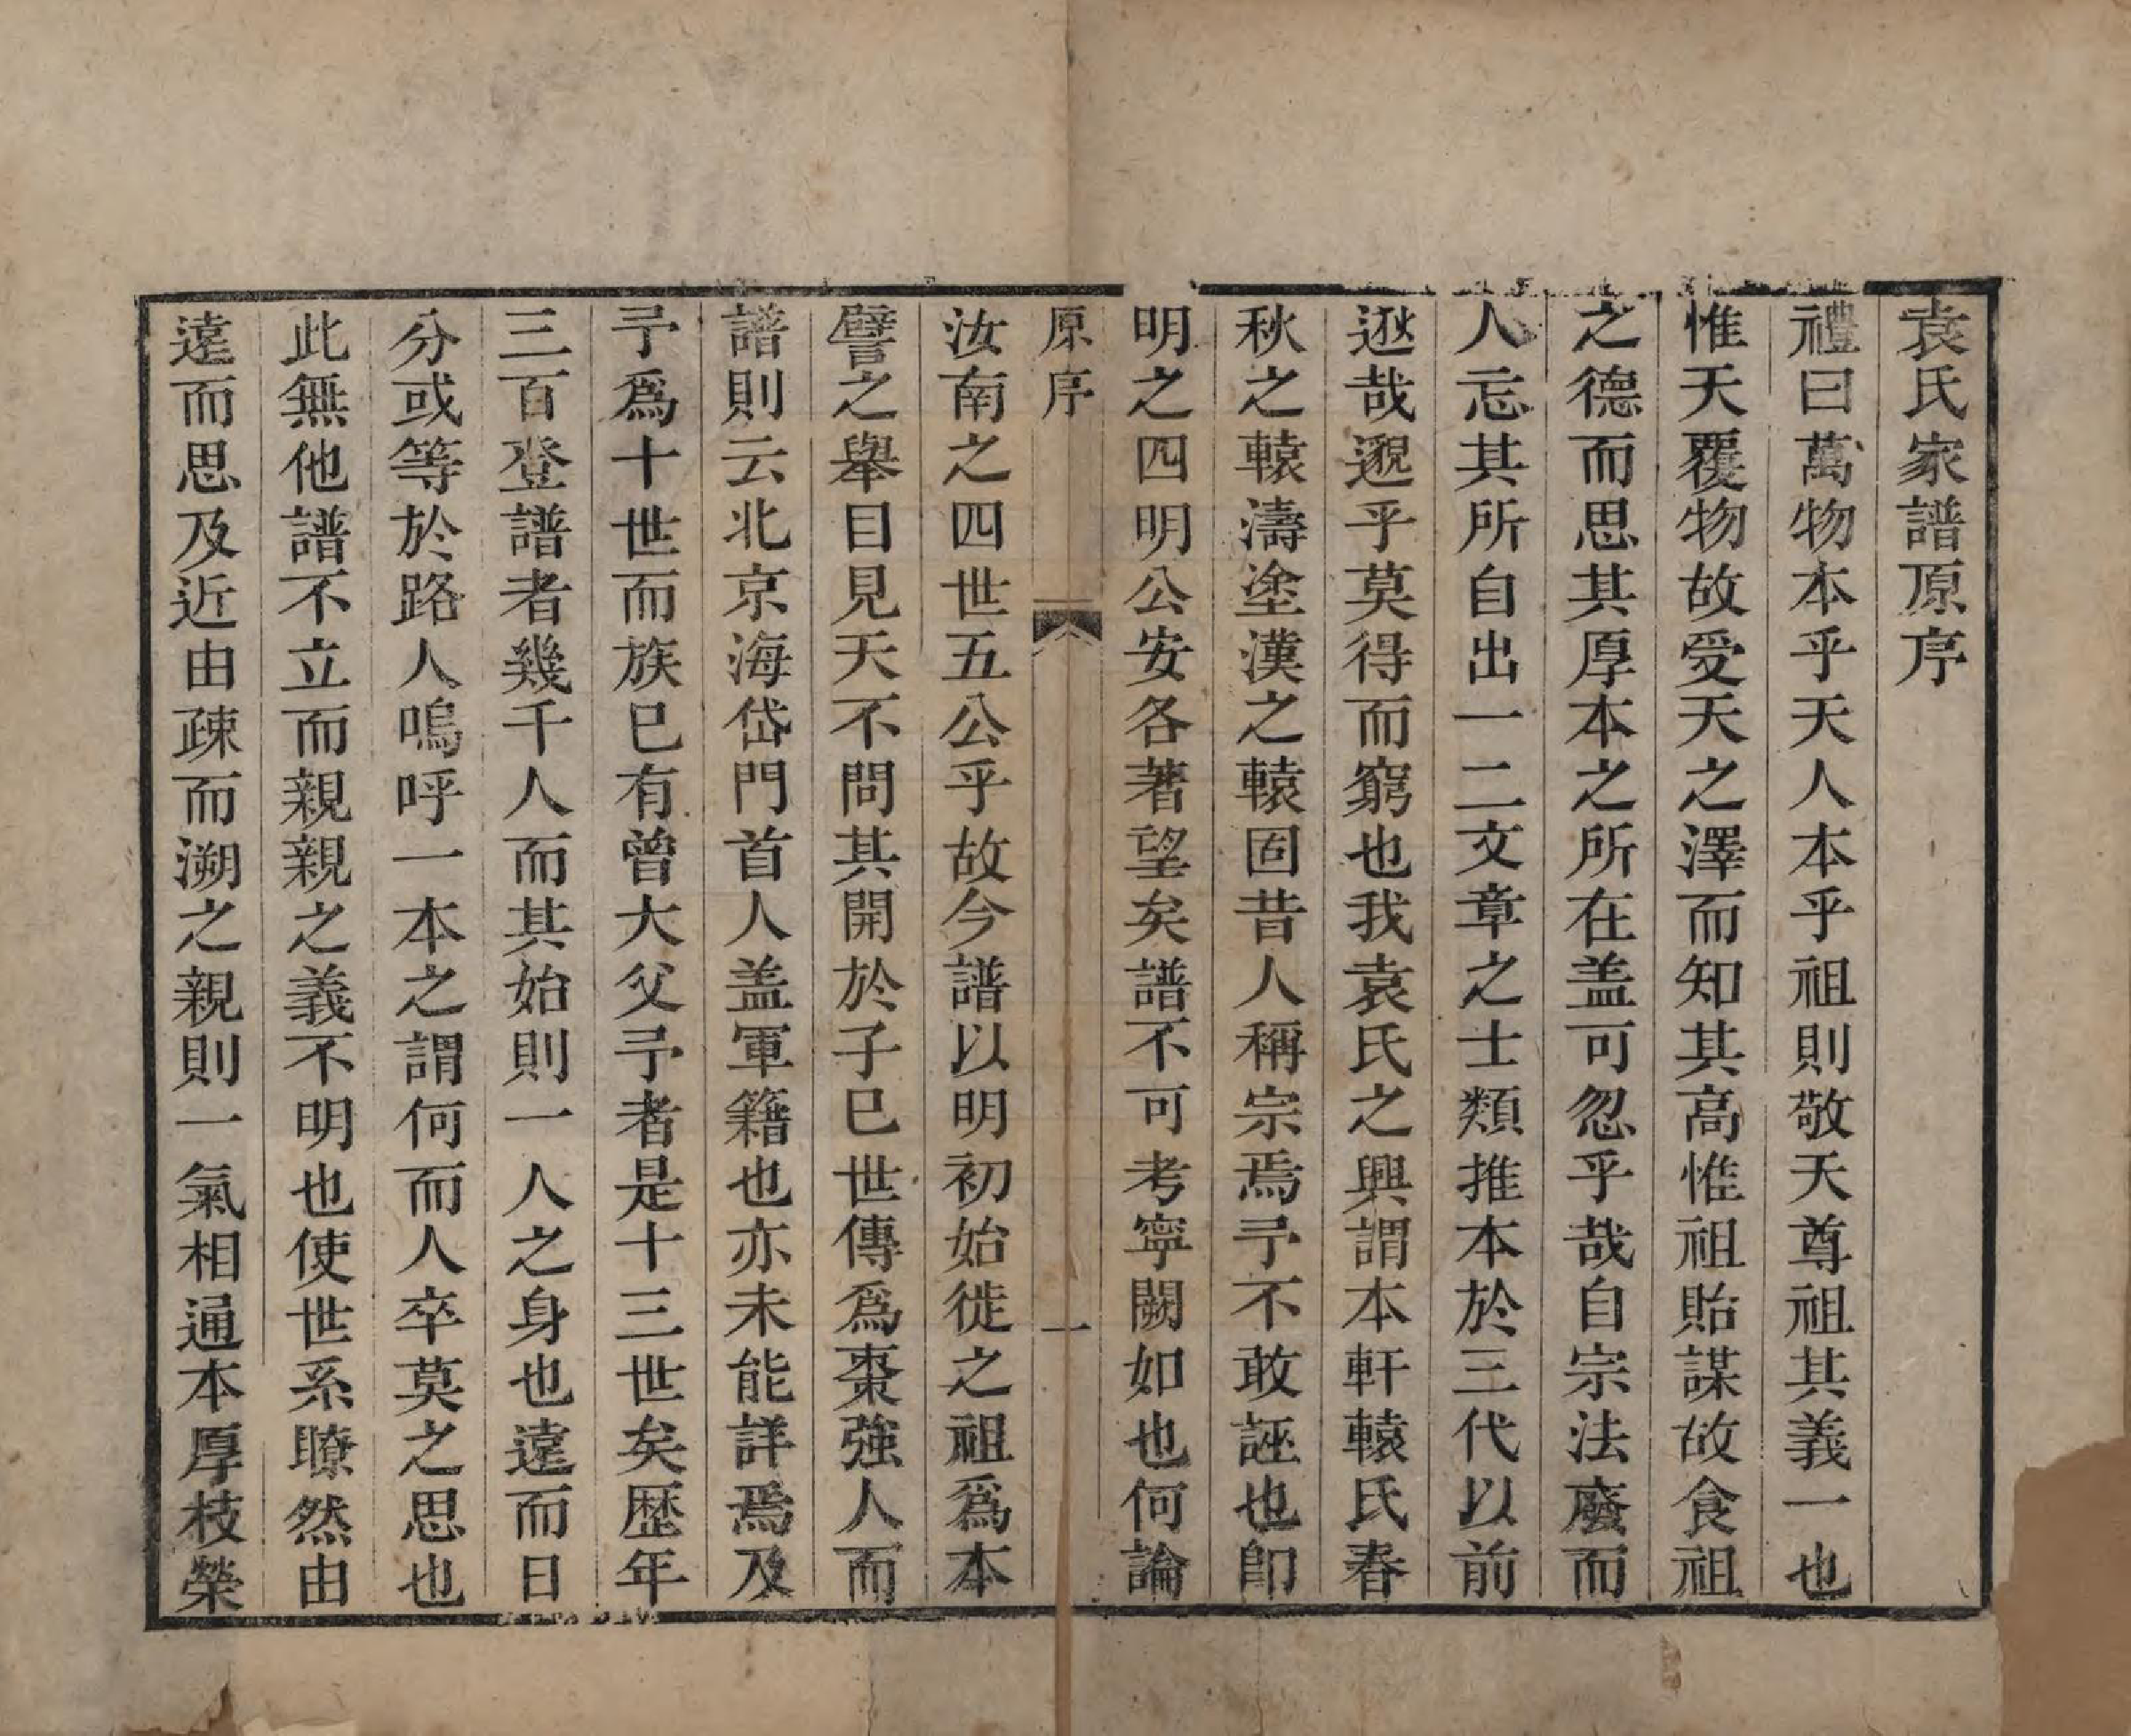 袁氏家譜原序
禮曰萬物本乎天人本乎祖則敬天尊祖其義一也
惟天覆物故受天之澤而知其高惟祖貽謀故食祖
之德而思其厚本之所在盖可忽乎哉自宗法廢而
人忘其所自出一二文章之士類推本於三代以前
逖哉邈乎莫得而窮也我袁氏之興謂本軒轅氏春
秋之轅濤塗漢之轅固昔人稱宗焉予不敢誣也卽
明之四明公安各著望矣譜不可考寧闕如也何論
原序 一
汝南之四世五公乎故今譜以明初始徙之祖爲本
譬之舉目見天不問其開於子巳世傳爲棗強人而
譜則云北京海岱門首人盖軍籍也亦未能詳焉及
予爲十世而族巳有曾大父予者是十三世矣歷年
三百登譜者幾千人而其始則一人之身也遠而日
分或等於路人嗚呼一本之謂何而人卒莫之思也
此無他譜不立而親親之義不明也使世系瞭然由
遠而思及近由疎而溯之親則一氣相通本厚枝榮